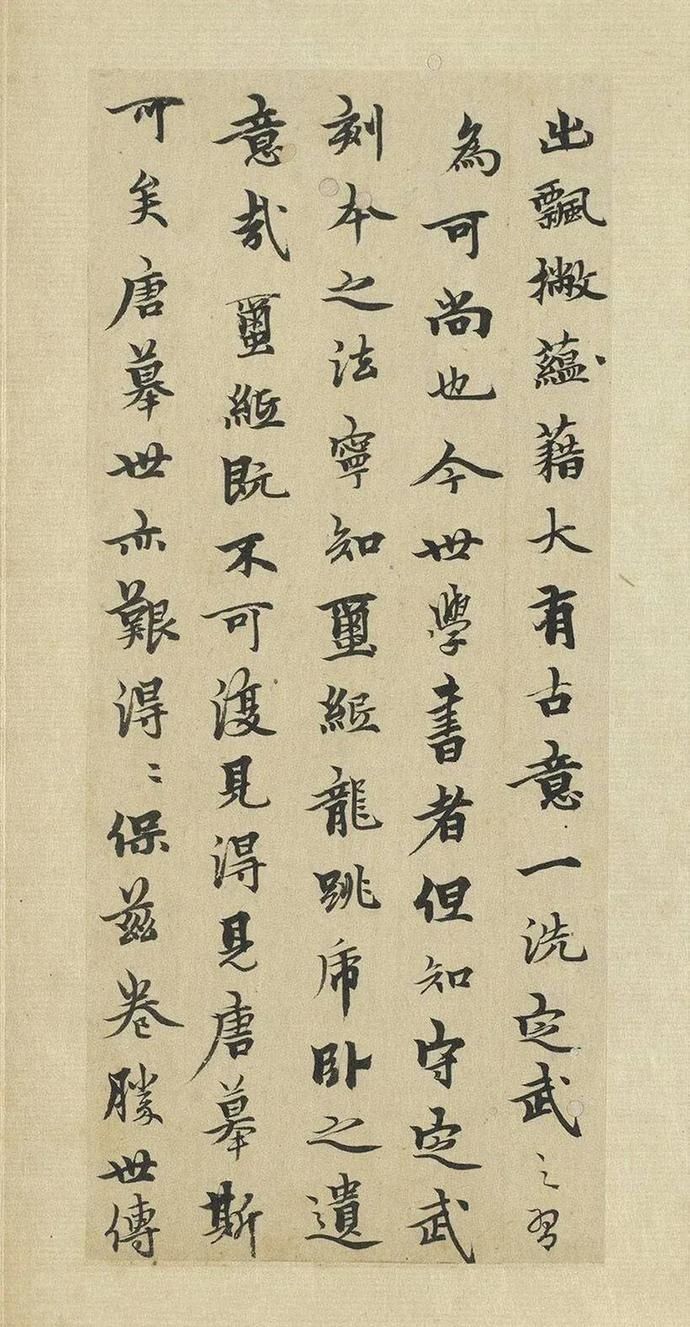 出飄撇蘊藉大有古意一洗定武之習
為可尚也今世學書者但知守定武
刻本之法寧知璽紙龍跳虎卧之遺
意哉璽紙既不可復見得見唐摹斯
可矣唐摹世亦艱得〻保茲卷勝世傳